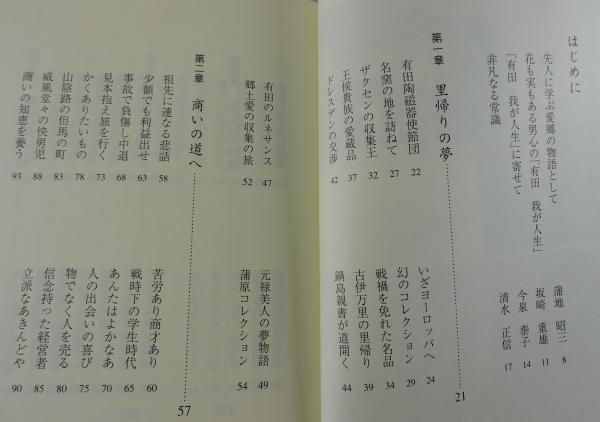 はじめに
先人に学ぶ愛郷の物語として 蒲地 昭三 8
花も実もある男心の「有田 我が人生」 坂崎 重雄 11
「有田 我が人生」に寄せて 今泉 泰子 14
非凡なる常識 清水 正信 17
第一章 里帰りの夢 21
有田陶磁器使節団 22
いざヨーロッパへ 24
名窯の地を訪ねて 27
幻のコレクション 29
ザクセンの収集王 32
戦禍を免れた名品 34
王侯貴族の愛蔵品 37
古伊万里の里帰り 39
ドレスデンの交渉 42
鍋島親書が道開く 44
有田のルネサンス 47
元禄美人の夢物語 49
郷土愛の収集の旅 52
蒲原コレクション 54
第二章 商いの道へ 57
祖先に連なる悲話 58
苦労あり商才あり 60
少額でも利益出せ 63
戦時下の学生時代 65
事故で負傷し中退 68
あんたはよかなあ 70
見本抱え旅を行く 73
人の出会いの喜び 75
かくありたいもの 78
物でなく人を売る 80
山陰路の但馬の町 83
信念持った経営者 85
威風堂々の快男児 88
立派なあきんどや 90
商いの知恵を養う 93
95